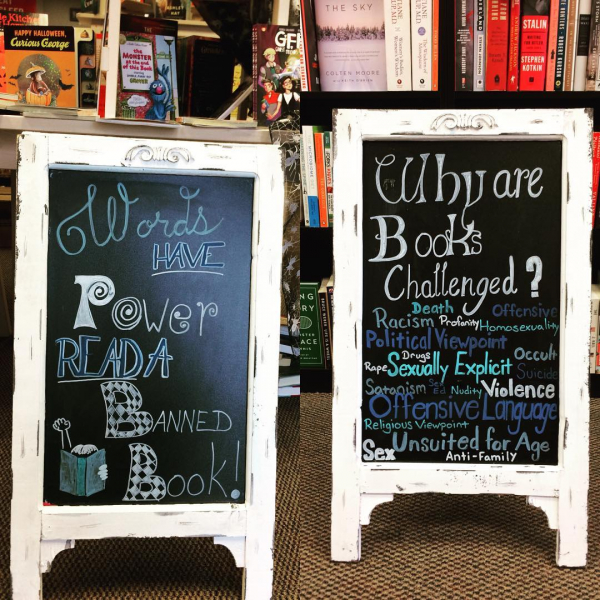 HAPPY HALLOWEEN,
Curious George
The MONSTER
at the end of this Book
GROVER
Words
HAVE
Power
READ A
BANNED
Book!
THE SKY
COLTEN MOORE
STALIN
STEPHEN
KOTKIN
Why are
Books
Challenged?
Death
Offensive
Racism Profanity Homosexuality
Political Viewpoint
Drugs
Occult
Rape Sexually Explicit
Suicide
Satanism Sex Ed Nudity Violence
Offensive Language
Religious Viewpoint
Unsuited for Age
Sex
Anti-Family